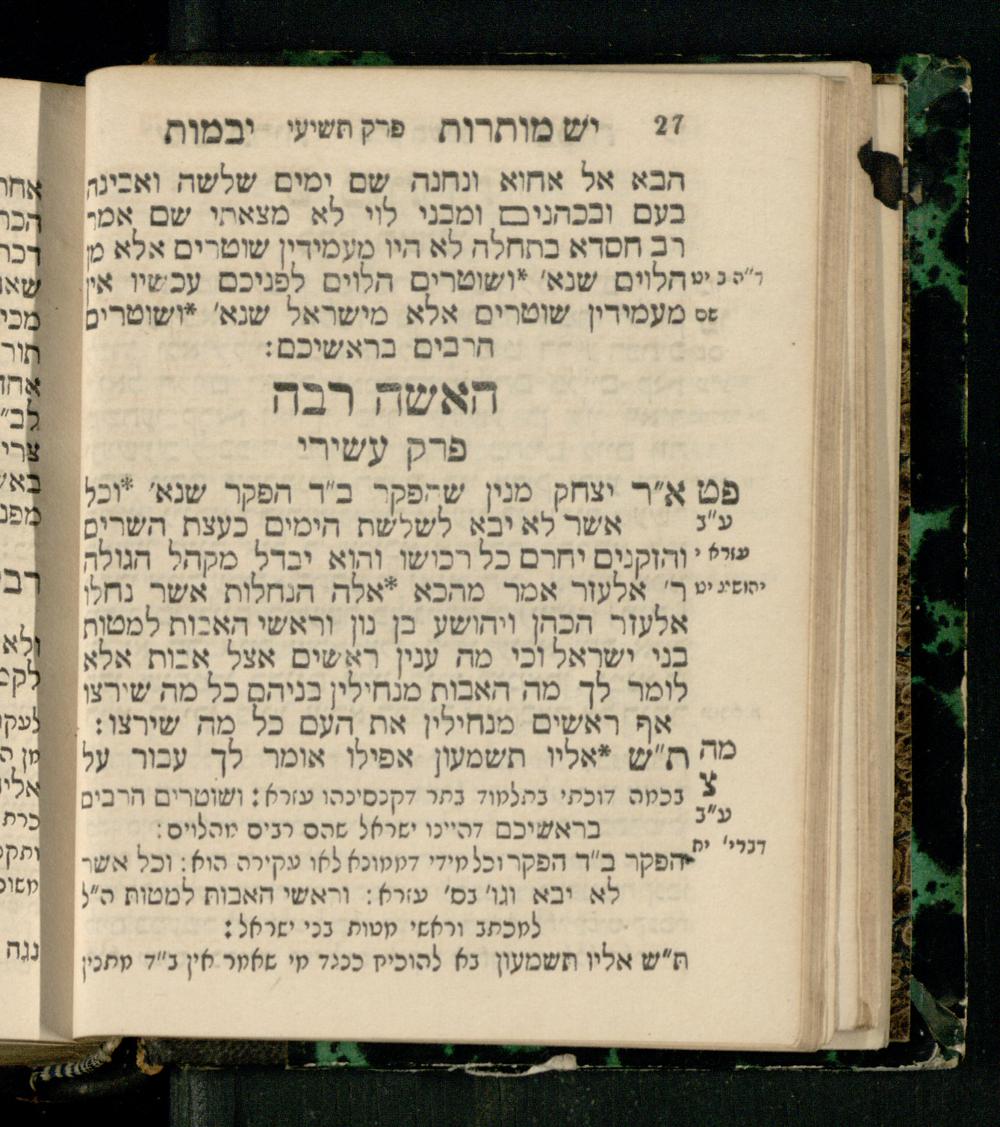 27 יש מותרות פרק תשיעי יבמות
הבא אל אחוא ונחנה שם ימים שלשה ואבינה
בעם ובכהנים ומבני לוי לא מצאתי שם אמר
רב חסדא בתחלה לא היו מעמידין שוטרים אלא מן
ד״ה ב יט הלוים שנא׳ *ושוטרים הלוים לפניכם עכשיו אין
שם מעמידין שוטרים אלא מישראל שנא׳ *ושוטרים
הרבים בראשיכם:
האשה רבה
פרק עשירי
פט א״ר יצחק מנין שהפקר ב״ד הפקר שנא׳ *וכל
ע״ב אשר לא יבא לשלשת הימים כעצת השרים
עזרא י והזקנים יחרם כל רכושו והוא יבדל מקהל הגולה
יהושע יט ר׳ אלעזר אמר מהכא *אלה הנחלות אשר נחלו
אלעזר הכהן ויהושע בן נון וראשי האבות למטות
בני ישראל וכי מה ענין ראשים אצל אבות אלא
לומר לך מה האבות מנחילין בניהם כל מה שירצו
אף ראשים מנחילין את העם כל מה שירצו:
מה ת״ש *אליו תשמעון אפילו אומר לך עבור על
צ
ע״ב
דברי׳ יח
בכמה דוכתי בתלמוד בתר דקנסינהו עזרא: ושוטרים הרבים
בראשיכם דהיינו ישראל שהם רבים מהלוים:
הפקר ב״ד הפקר וכל מידי דממונא לאו עקירה הוא: וכל אשר
לא יבא וגו׳ בס׳ עזרא: וראשי האבות למטות ה״ל
למכתב וראשי מטות בני ישראל:
ת״ש אליו תשמעון בא להוכיח כנגד מי שאמר אין ב״ד מתנין